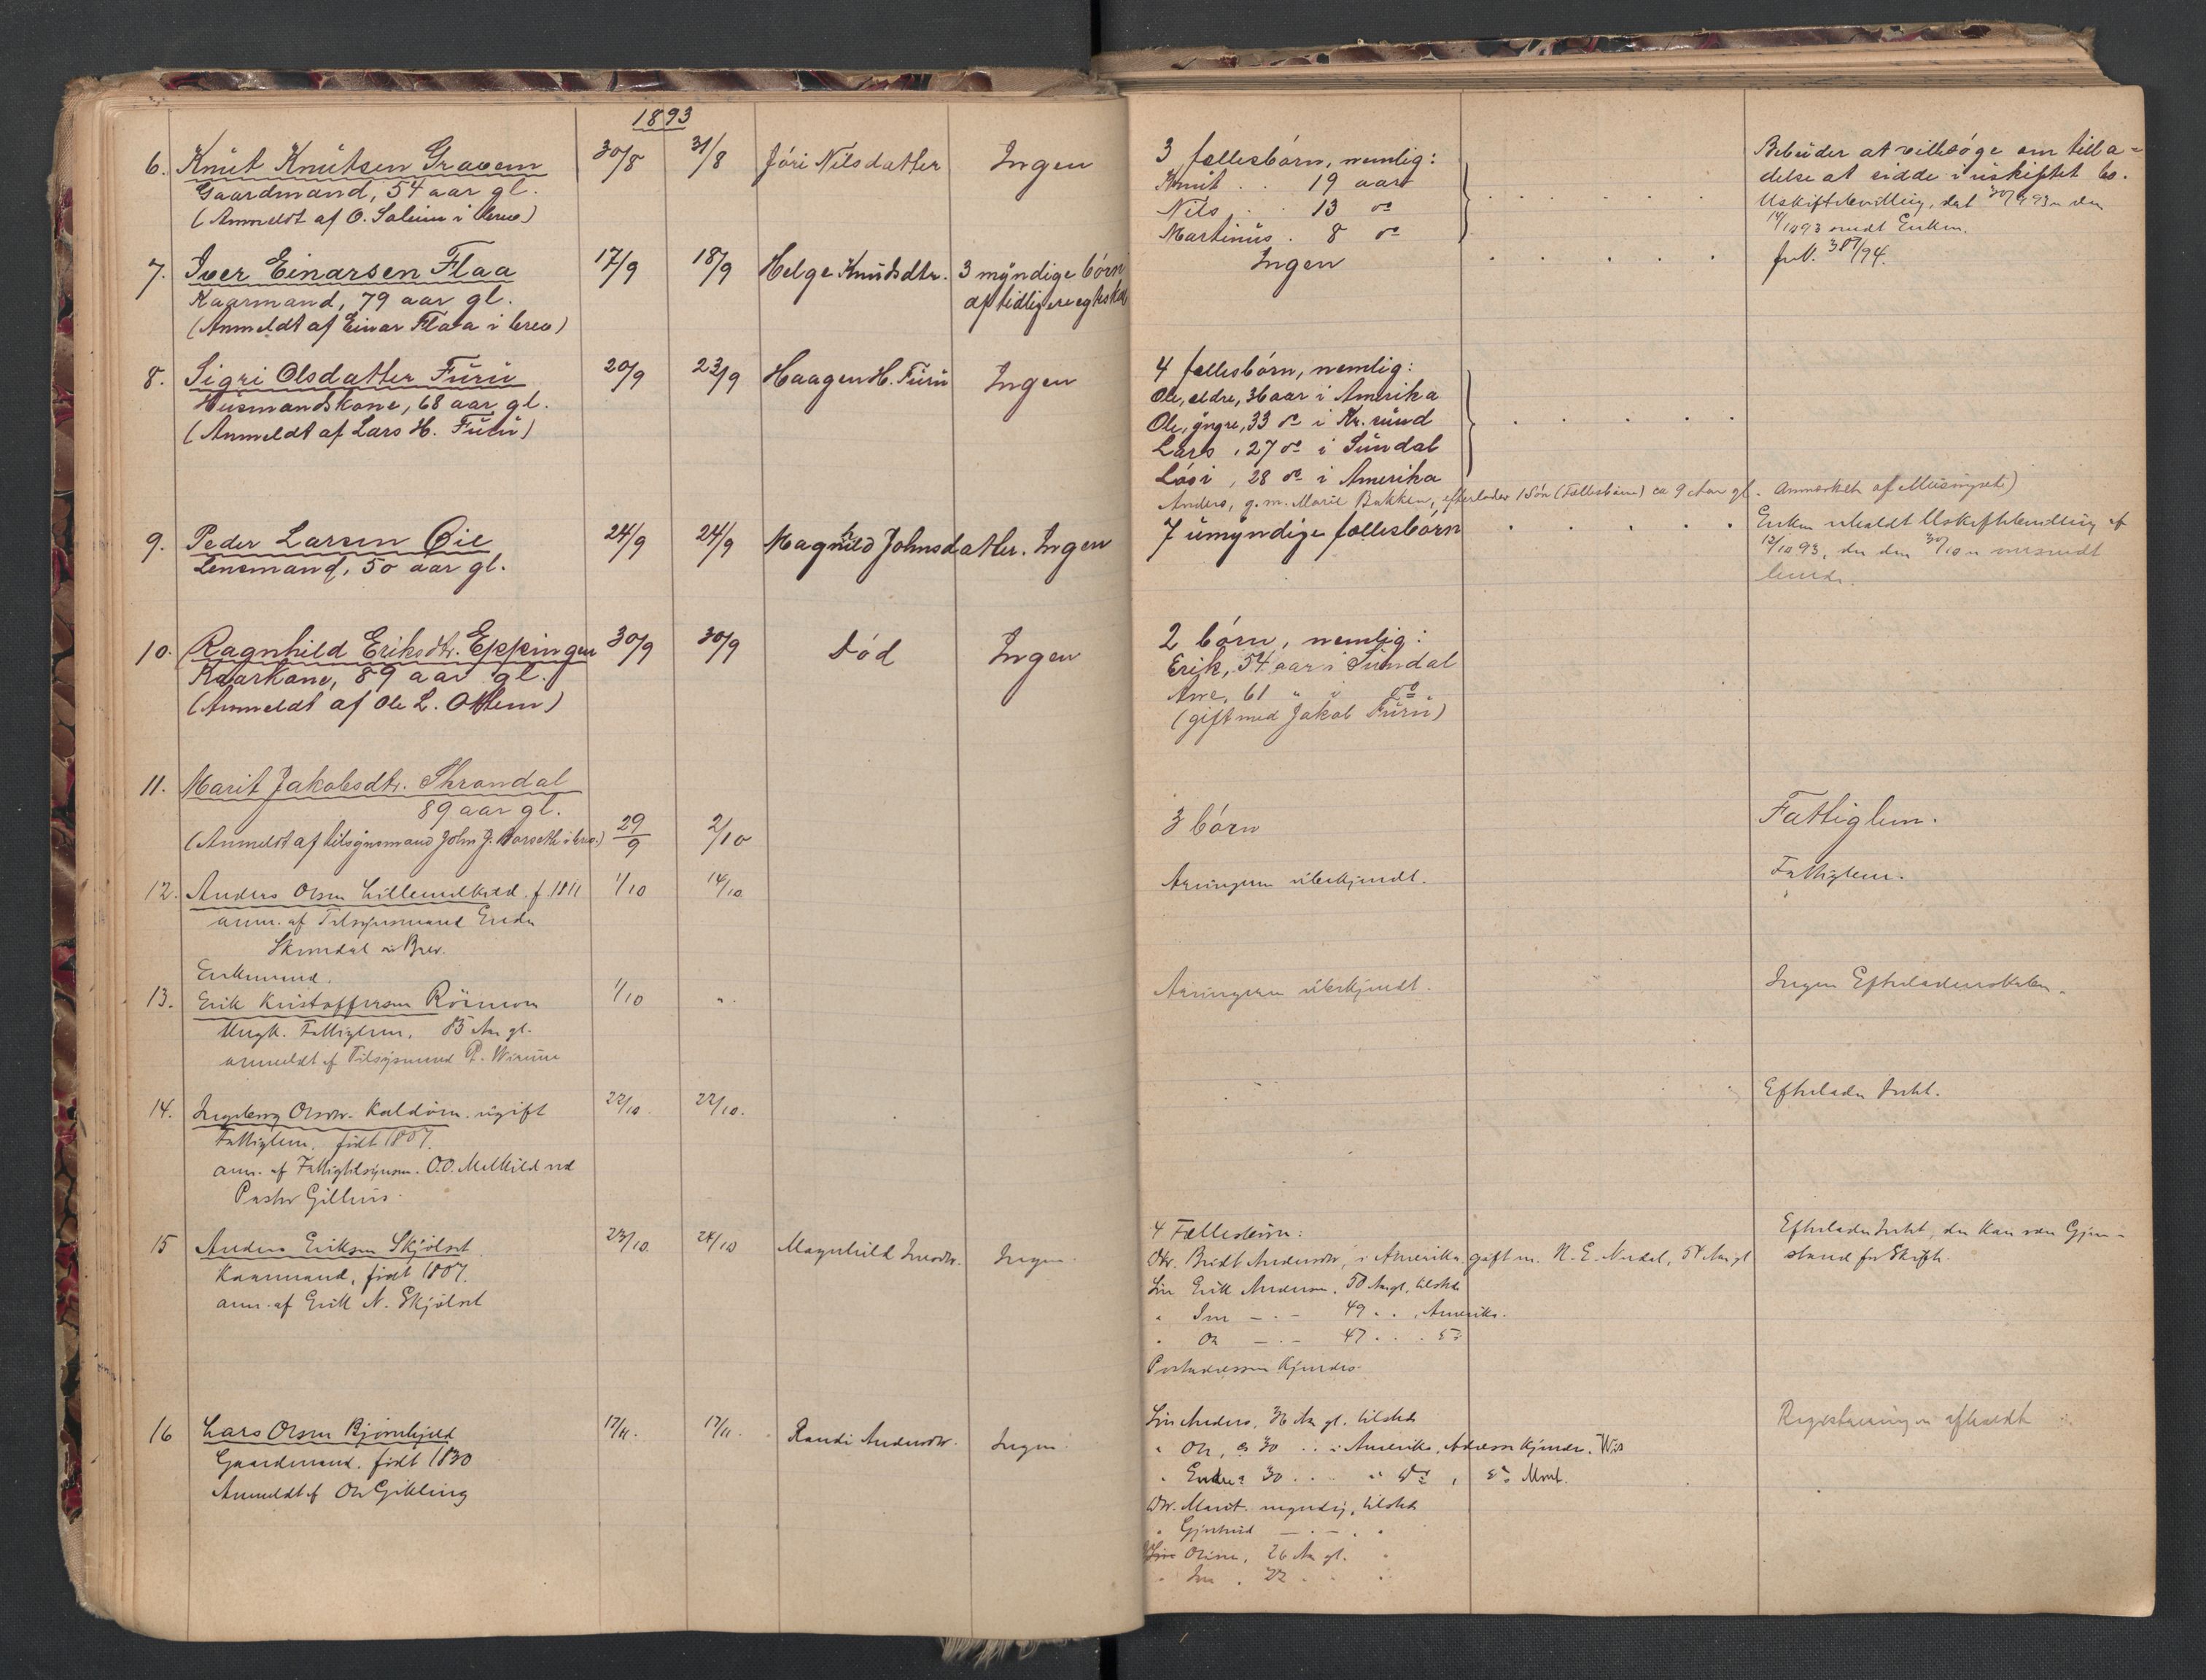 1893
6. Knut Knutsen Gravem 30/8 31/8 Jóri Nilsdatter Ingen
Gaardmand, 54 aar gl.
(Anmeldt af O. Solem i brev)
7. Iver Einarsen Flaa 17/9 18/9 Helge Knudsdtr. 3 myndige børn
Kaarmand, 79 aar gl. af tidligere egteskab
(Anmeldt af Einar Flaa i brev)
8. Sigri Olsdatter Furu 20/9 23/9 Haagen H. Furu Ingen
Husmandskone, 68 aar gl.
(Anmeldt af Lars H. Furu)
9. Peder Larsen Øie 24/9 24/9 Magnhild Johnsdatter. Ingen
Lensmand, 50 aar gl.
10. Ragnhild Eriksdtr. Eppingen 30/9 30/9 Død Ingen
Kaarkone, 89 aar gl.
(Anmeldt af Ole L. Ottem)
11. Marit Jakobsdtr. Throndal
89 aar gl.
(Anmeldt af tilsynsmand John J. Borseth i brev.) 29/9 2/10
12. Anders Olsen Lillemelkild. f. 1811 1/10 14/10
anm. af Tilsynsmand Endre
i Brev.
Enkemand.
13. Erik Kristoffersen 1/10 "
Ungk. Fattiglem, 85 Aar gl.
anmeldt af Tilsynsmand P.
14. Ingeborg Olsdtr. Kaldørn. ugift 22/10. 22/10.
Fattiglem. født 1807.
anm. af O.O. Melkild ved
Pastor
15 Anders Eriksen Skjølset 23/10. 24/10 Magnhild Ingen
Kaarmand, født 1807.
anm. af Erik N. Skjølset
16 Lars Olsen Bjørnhjeld 17/11. 17/11. Randi Andersdtr. Ingen.
Gaardmand. født 1830
Anmeldt af Ole Gikling
3 fællesbørn, nemlig:
Knut . . 19 aar
Nils . . 13 do
Martinus . 8 do
Bebuder at ville søge om tilla=
delse at sidde i uskiftet bo.
Uskiftebevilling, dat 30/9 93
14/10 93 sendt Enken.
Ingen
jnl. 387/94.
4 fællesbørn, nemlig:
Ole, eldre, 36 aar i Amerika
Ole, yngre, 33 do i Kr.sund
Lars , 27 do i Sundal
, 28 do i Amerika
Anders, g. m. Marie Bakken, efterlader 1 Søn (Fællesbarn) ca 9 Aar gl. Anmerket af
7 umyndige fællesbørn
Enken meddelt Uskiftebevilling af
12/10 93, der den 30/10 oversendt
hende.
2 børn, nemlig:
Erik, 54 aar i Sundal
Ane, 61 " i do
(gift med Jakob Furu)
3 børn Fattiglem.
Arvingerne ubekjendt. Fattiglem.
Arvingerne ubekjendt. Ingen Efterladenskaber.
Efterlader Intet.
4 Fællesbørn:
Dtr. Bridt Andersdtr, i Amerika gift m. N. E. Nerdal, 54 Aar gl
Søn Erik Andersen. 50 Aar gl, tilstede
" Iver — · — 49 " " , Amerika.
" Ole — · — 47 " " do
Postadressen kjendes.
Efterlader Intet, der kan være Gjen-
stand for Skifte.
Søn Anders, 36 Aar gl. tilstede
" Ole, 30 " " i Amerika, Adresse kjendes. Wis
" Endre 30 " " " do , do Mont.
Dtr. Marit. myndig, tilstede
" Gjertrud — · — " "
Oline, 26 Aar gl. "
" " 22 " "
Registrering er afholdt